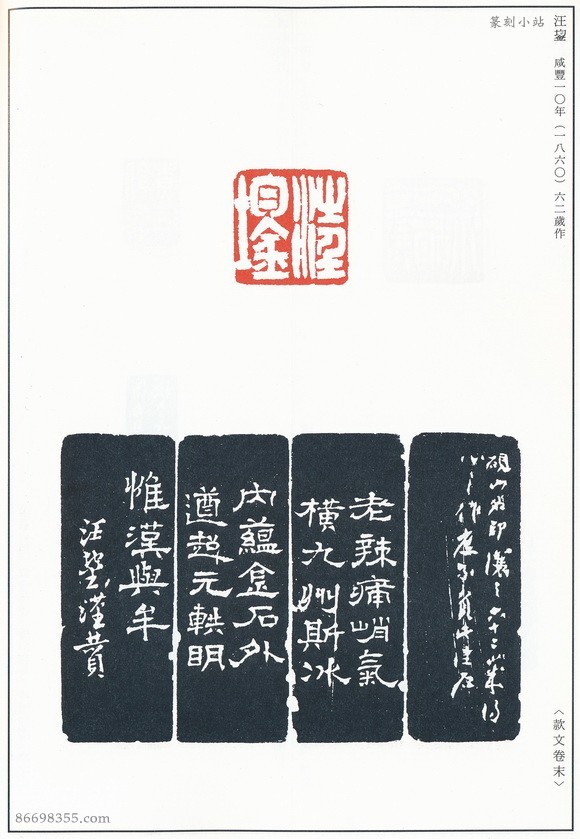 篆刻小站
汪鋆　咸豐一〇年（一八六〇）六二歲作
汪鋆
讓之六十二歲得
心之作
老辣痛峭氣
橫九州斯冰
內蘊金石外
遒超元軼明
惟漢與牟
汪鋆謹贊
〈款文卷末〉
86698355.com